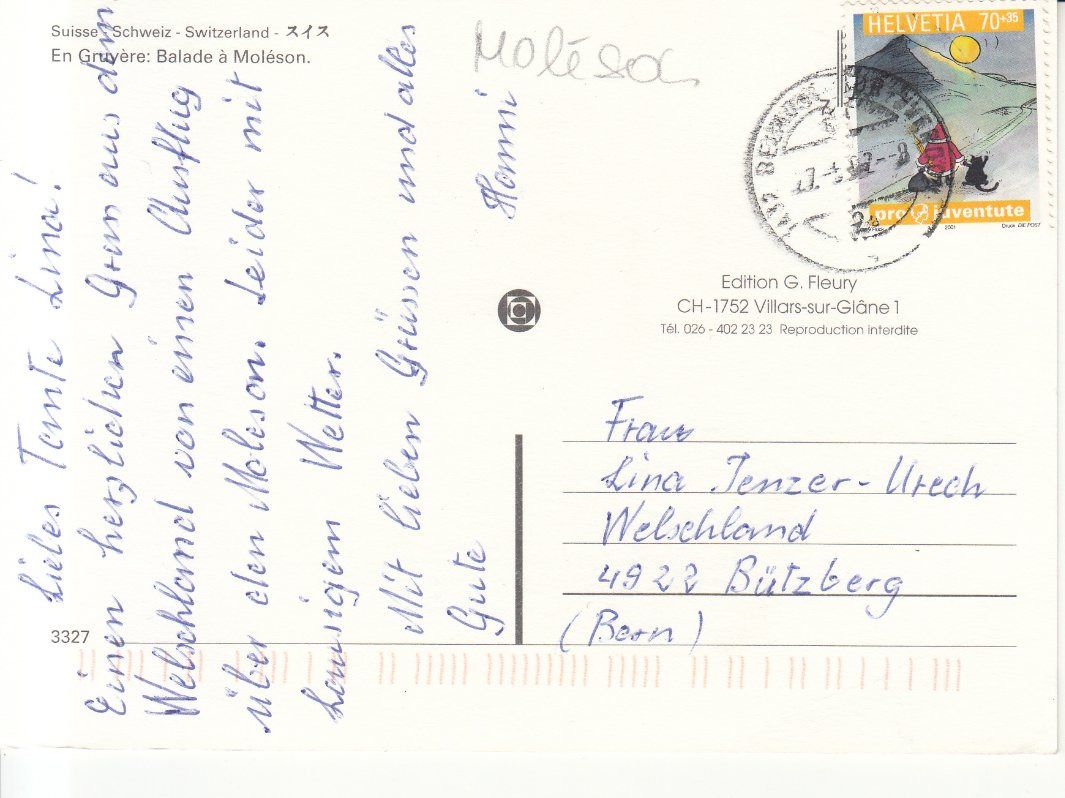 Suisse - Schweiz - Switzerland - スイス
En Gruyère: Balade à Moléson.
Moléson
HELVETIA 70+35
pro juventute
2001
Druck: DIE POST
Edition G. Fleury
CH-1752 Villars-sur-Glâne 1
Tél. 026 - 402 23 23 Reproduction interdite
Liebes Tante Lina!
Einen herzlichen Gruss aus dem
Welschland von einen Ausflug
über den Moleson. Leider mit
Lausigem Wetter.
Mit lieben Grüssen und alles
Gute
Hanni
Frau
Lina Jenzer-Urech
Welschland
4922 Bützberg
(Bern)
3327